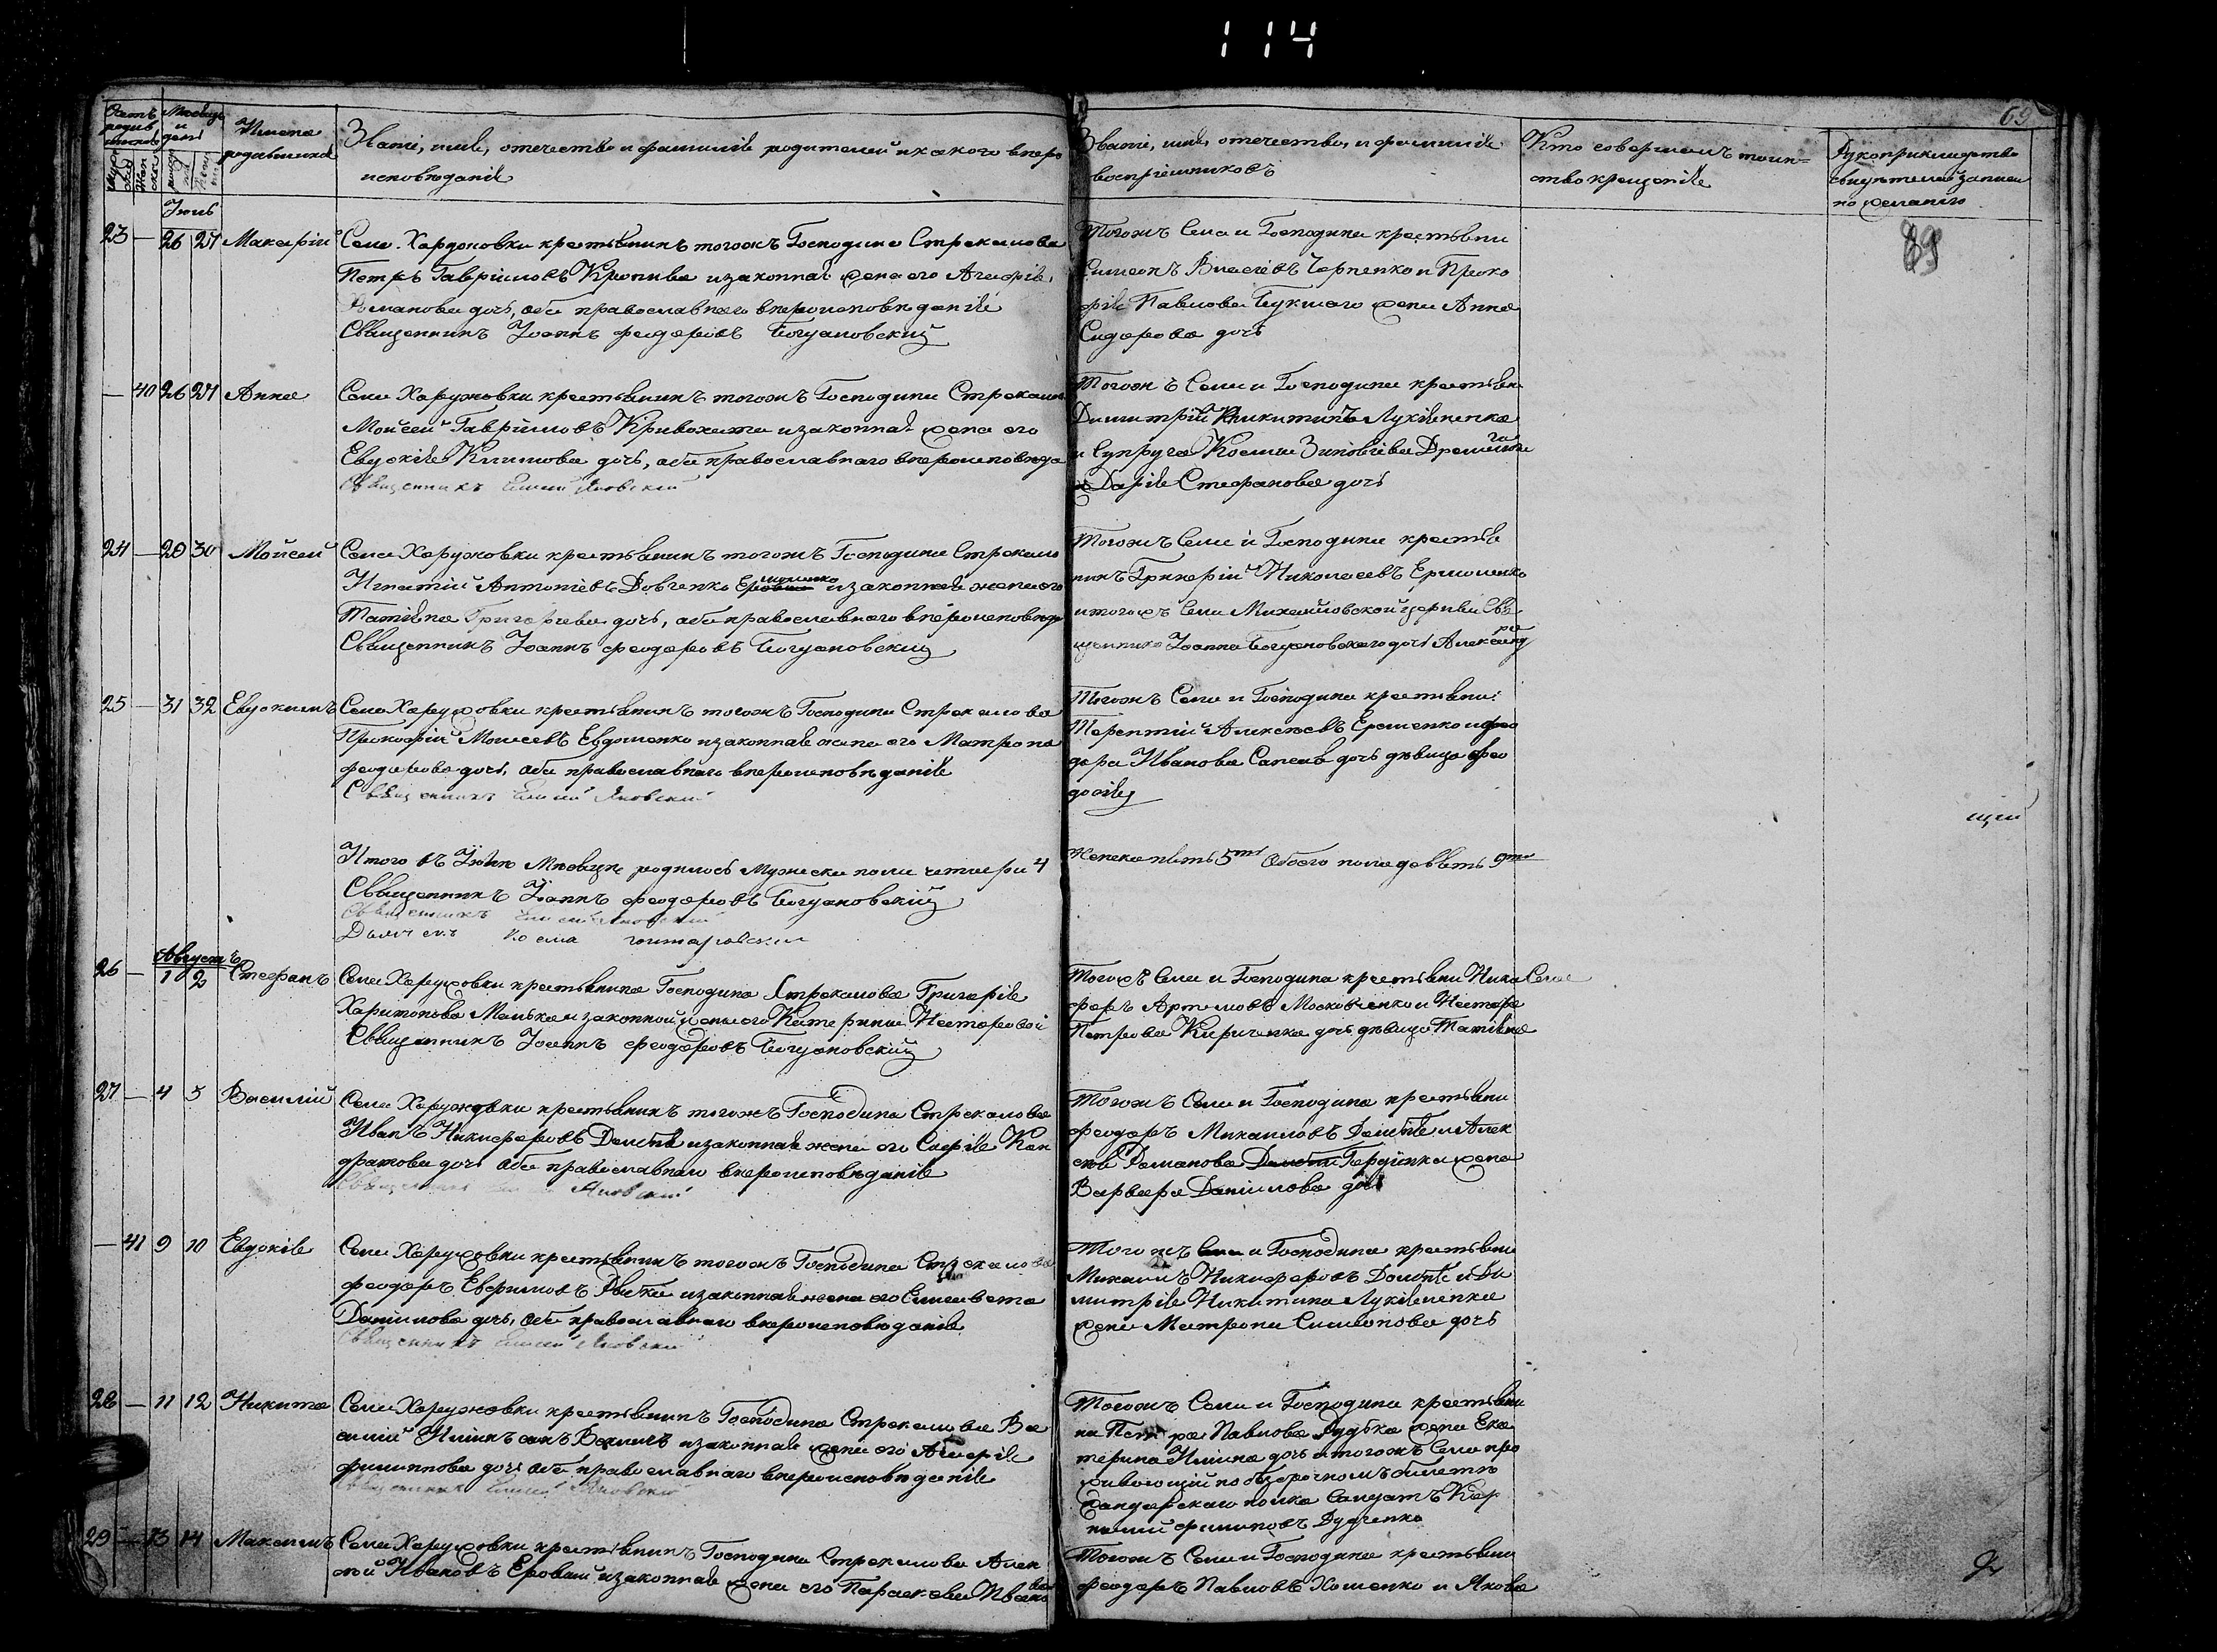 114
69
Счетъ родив шихся Мѣсяцъ и день Имена родившихся Званіе, имя, отечество и фамилія родителей и какого вѣро
исповѣданія
Званіе, имя, отечество, и фамилія
воспріемниковъ
Кто совершалъ таин=
ство крещенія
Рукоприкладство
свидѣтелей записи
по желанію
89
Іюль
23 — 26 27 Макарій Села Харужовки крестьянинъ тогожъ Господина Стрекалова
Петръ Гавріиловъ Кропива и законная жена его Агафія
Романова дочь, оба православнаго вѣроисповѣданія
Священникъ Іоаннъ Феодоровъ Богдановскій
Тогожъ Села и Господина крестьяни
Симеонъ Власіевъ Черненко и Проко
фія Павлова жена Анна
Сидорова дочь
— 40 26 27 Анна Села Харужовки крестьянинъ тогожъ Господина Стрекалов
Моисей Гавріиловъ Кривохата и законная жена его
Евдокія Климова дочь, оба православнаго вѣроисповѣда
Священникъ Яновскій
Тогожъ Села и Господина крестьяни
Димитрій Никитинъ Лукіяненко
и Супруга Космы Зиновіева
Дарія Стефанова дочь
24 — 20 30 Мойсей Села Харужовки крестьянинъ тогожъ Господина Стрекало
Игнатій Антоніевъ Довченко и законная жена его
Татіяна Григоріева дочь, оба православнаго вѣроисповѣд
Священникъ Іоаннъ Феодоровъ Богдановскій
Тогожъ Села и Господина крестья
нинъ Григорій Николаевъ Ермоленко
и тогожъ Села Михайловской церкви Свя
щенника Іоанна Богдановскаго дочь Александра
25 — 31 32 Евдокимъ Села Харужовки крестьянинъ тогожъ Господина Стрекалова
Прокофій Моисеевъ Евдоменко и законная жена его Матрона
Феодорова дочь, оба православнаго вѣроисповѣданія
Священникъ Яновскій
Тогожъ Села и Господина крестьяни
Терентій Алексѣевъ Ерешенко и Фео
дора Иванова дочь дѣвица Фео
досія
щей
Итого въ Іюлѣ Мѣсяцѣ родилось Мужеска пола четыри 4
Женска пять 5ть Обоего пола девять 9ть
Священникъ Іоаннъ Феодоровъ Богдановскій
Священникъ Яновскій
Дьячекъ Косма
Августъ
26 — 1 2 Стефанъ Села Харужовки крестьянина Господина Стрекалова Григорія
Харитонова Манька и законной жены его Катерины Несторовой
Священникъ Іоаннъ Феодоровъ Богдановскій
Тогожъ Села и Господина крестьяни Ники
форъ Артемовъ Московченко и Нестора
Петрова Кириченка дочь дѣвица Татіяна
27 — 4 5 Василій Села Харужовки крестьянинъ тогожъ Господина Стрекалова
Иванъ Никифоровъ и законная жена его Софія Кон
дратова дочь оба православнаго вѣроисповѣданія
Священникъ Яновскій
Тогожъ Села и Господина крестьяни
Феодоръ Михаиловъ и Алек
сѣя Романова жена
Варвара Даніилова дочь
— 41 9 10 Евдокія Села Харужовки крестьянинъ тогожъ Господина Стрекалова
Феодоръ Евфимовъ и законная жена его Елисавета
Даніилова дочь, оба православнаго вѣроисповѣданія
Священникъ Яновскій
Тогожъ Села и Господина крестьяни
Михаилъ Никифоровъ и Ди
митрія Никитина Лукіяненка
жена Матрона Симеонова дочь
28 — 11 12 Никита Села Харужовки крестьянинъ Господина Стрекалова Ва
силій Ильинъ сынъ и законная жена его Агафія
Филиппова дочь оба православнаго вѣроисповѣданія
Священникъ Яновскій
Тогожъ Села и Господина крестьяни
на Петра Павлова Дудка жена Ека
терина Ильина дочь и тогожъ Села про
живающій по безсрочномъ билетѣ
полка Солдатъ Кор
нилій Филиповъ Дудченко
29 — 13 14 Максимъ Села Харужовки крестьянинъ Господина Стрекалова Алек
сѣй Ивановъ и законная жена его Параскевія Иванова
Тогожъ Села и Господина крестьяни
Феодоръ Павловъ Хоменко и Якова